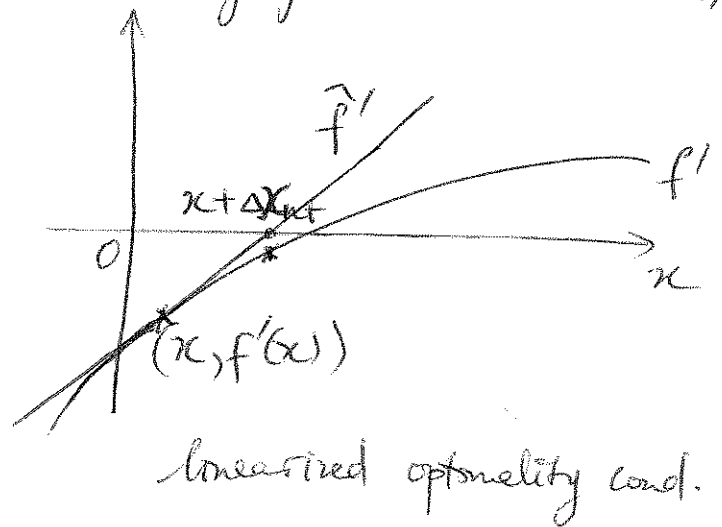 f̂'
f'
x+Δx_nt
0
x
(x, f'(x))
linearized optimality cond.